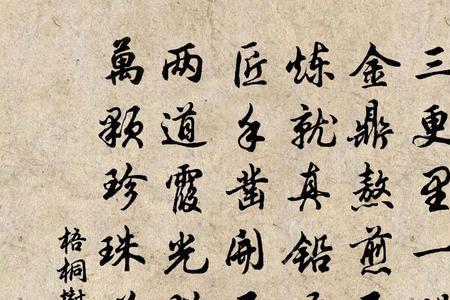 三更里一
金鼎熬煎
炼就真铅
匠手凿開
两道霞光
萬顆珍珠
梧桐樹